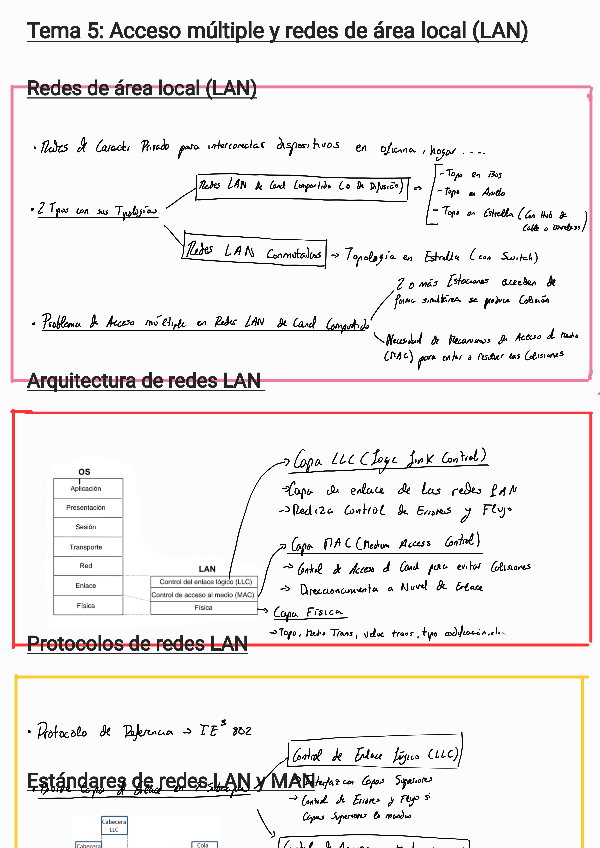 Tema 5: Acceso múltiple y redes de área local (LAN)
Redes de área local (LAN)
• Redes de Caracter Privado para interconectar dispositivos en oficina, hogar ....
• 2 Tipos con sus Topologías
Redes LAN de Canal Compartido (o de Difusión) →
- Topo en Bus
- Topo en Anillo
- Topo en Estrella (Con Hub de
Cable o wireless)
Redes LAN Conmutadas → Topología en Estrella (con Switch)
• Problema de Acceso múltiple en Redes LAN de Canal Compartido
2 o más Estaciones acceden de
forma simultánea se produce Colisión
Necesidad de Mecanismos de Acceso al medio
(MAC) para evitar o resolver las Colisiones
Arquitectura de redes LAN
OS
Aplicación
Presentación
Sesión
Transporte
Red
Enlace
Física
LAN
Control del enlace lógico (LLC)
Control de acceso al medio (MAC)
Física
→ Capa LLC (Logic Link Control)
→ Capa de enlace de las redes LAN
→ Realiza Control de Errores y Flujo
→ Capa MAC (Medium Access Control)
→ Control de Acceso al Canal para evitar Colisiones
→ Direccionamiento a Nivel de Enlace
→ Capa Física
→ Topo, Medio Trans, veloc trans, tipo codificación, etc.
Protocolos de redes LAN
• Protocolo de Referencia → IE³ 802
Control de Enlace Lógico (LLC)
Estándares de redes LAN y MAN
Interfaz con Capas Superiores
→ Control de Errores y Flujo si
Capas Superiores lo
Cabecera
LLC
Cabecera
Cola